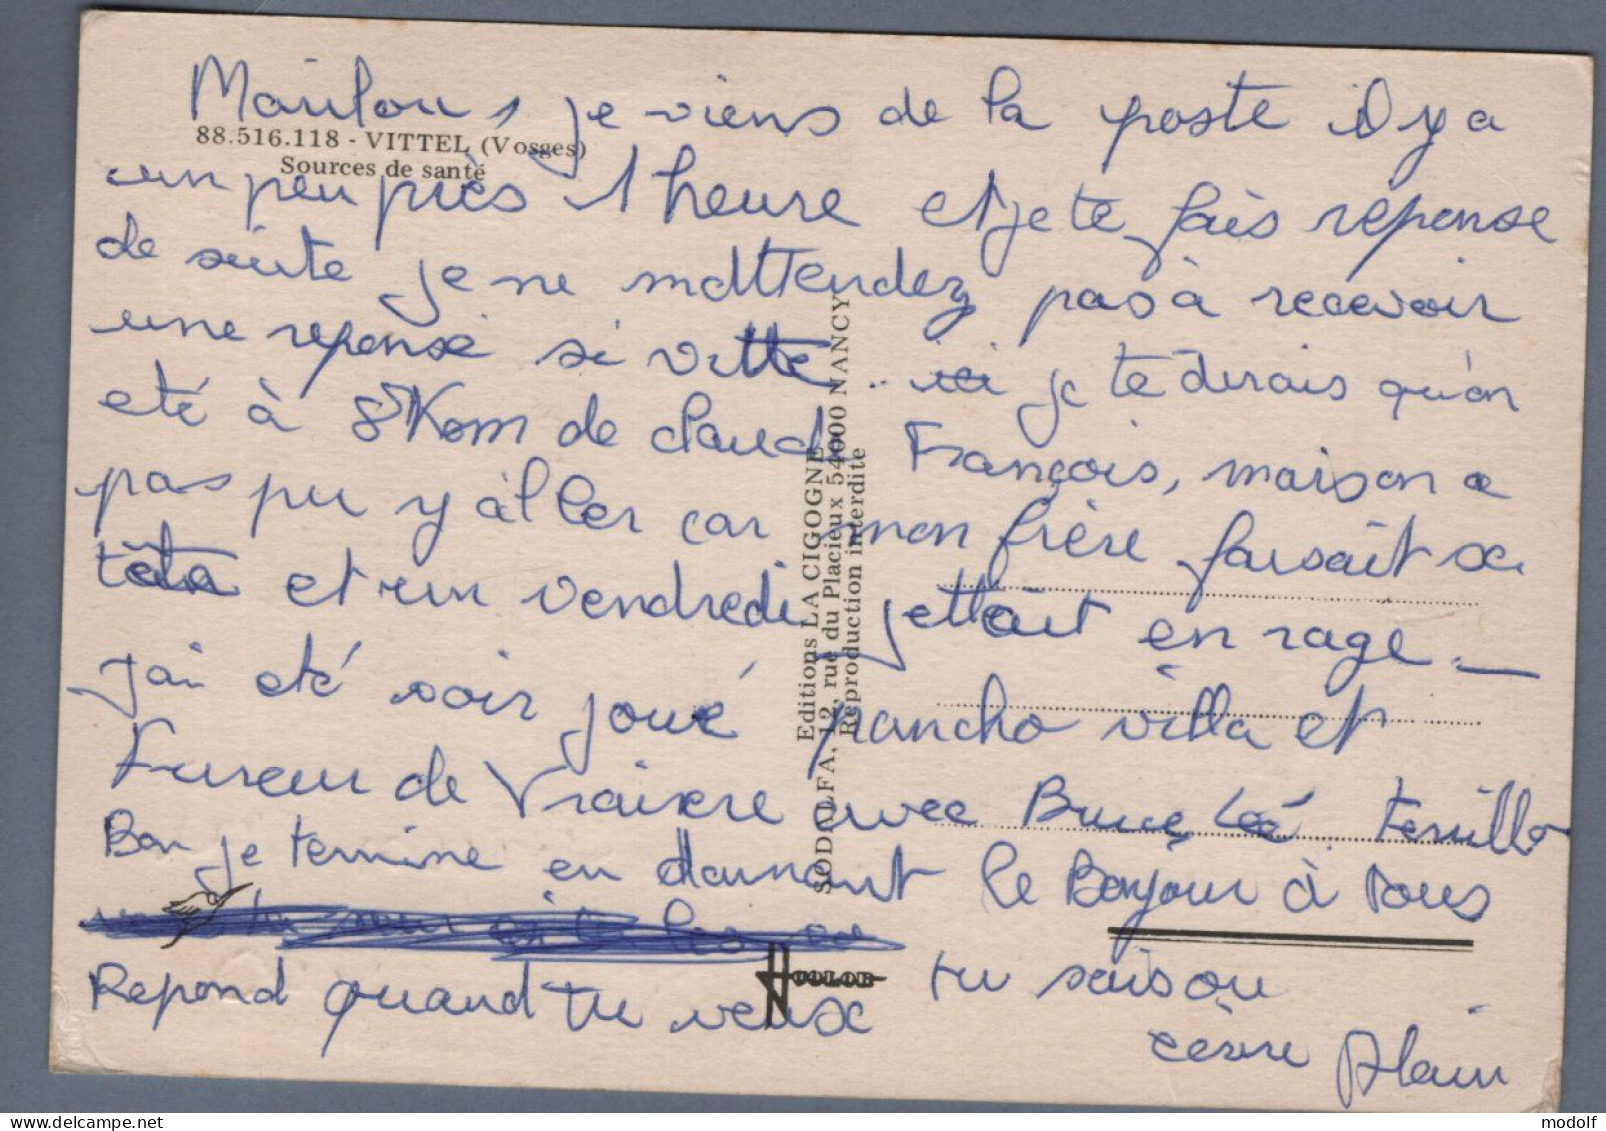 Marilou, je viens de la poste il y a
88.516.118 - VITTEL (Vosges)
Sources de santé
un peu près 1 heure et je te fais reponse
de suite je ne m'attendez pas à recevoir
une reponse si vitte .. ici je te dirais qu'on
eté à de Claude François, maison a
pas pu y àller car mon frère faisait sa
tête et un vendredi jettait en rage _
J'ai eté voir joué pancho villa et
Fureur de avec Bruce Leé
Bon je termine en donnant le Bonjour à tous
Repond quand tu veux tu sais ou
Alain
Editions LA CIGOGNE
SODALFA, 12, rue du Placieux 54000 NANCY
Reproduction interdite
COLOR
modolf